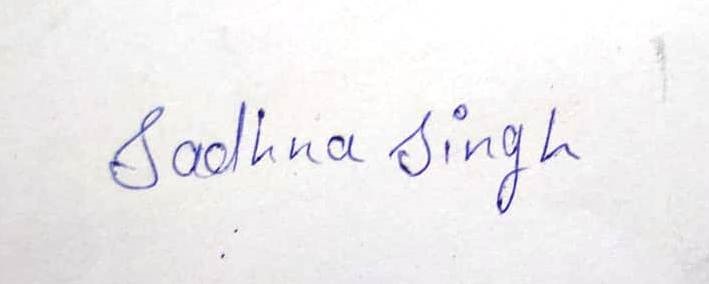 Sadhna Singh